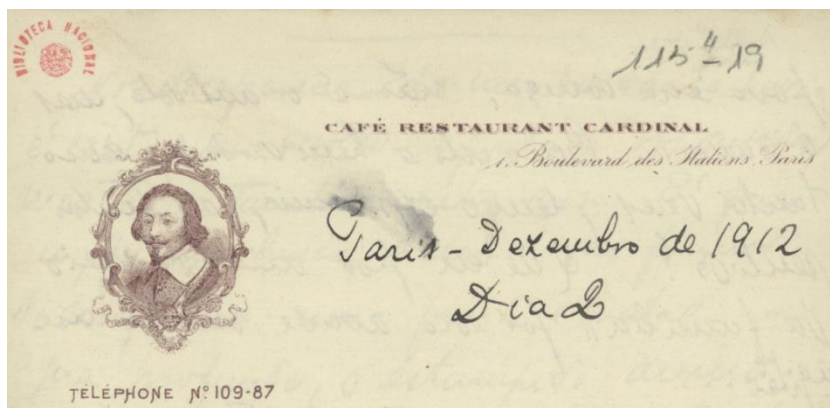 BIBLIOTECA NACIONAL
115⁴-19
CAFÉ RESTAURANT CARDINAL
1, Boulevard des Italiens, Paris
Paris - Dezembro de 1912
Dia 2
TÉLÉPHONE Nº 109-87